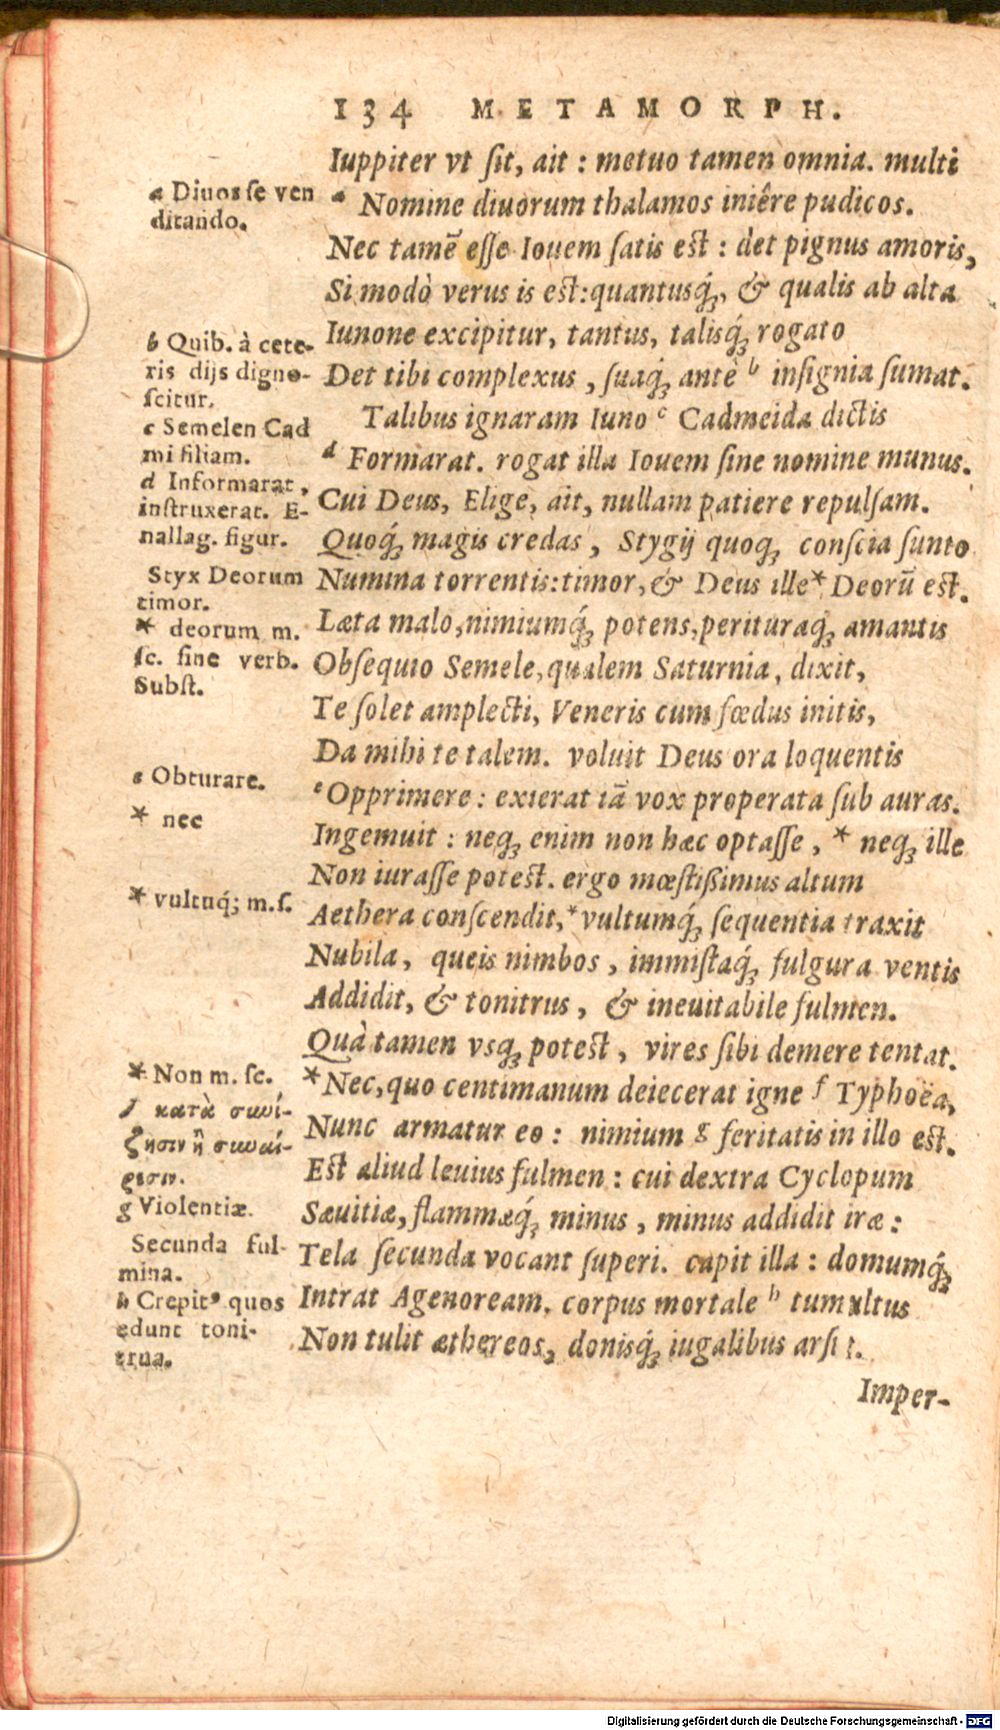 134 METAMORPH.
Iuppiter vt ſit, ait : metuo tamen omnia. multi
a Nomine diuorum thalamos iniêre pudicos.
Nec tamẽ eſſe Iouem ſatis eſt : det pignus amoris,
Si modò verus is eſt:quantusq́;, & qualis ab alta
Iunone excipitur, tantus, talisq́; rogato
Det tibi complexus , ſuaq́; antè b inſignia ſumat.
Talibus ignaram Iuno c Cadmeida dictis
d Formarat. rogat illa Iouem ſine nomine munus.
Cui Deus, Elige, ait, nullam patiere repulſam.
Quoq́; magis credas , Stygij quoq; conſcia ſunto
Numina torrentis:timor, & Deus ille * Deorũ eſt.
Læta malo,nimiumq́; potens,perituraq́; amantis
Obſequio Semele,qualem Saturnia, dixit,
Te ſolet amplecti, Veneris cum fœdus initis,
Da mihi te talem. voluit Deus ora loquentis
e Opprimere : exierat iã vox properata ſub auras.
Ingemuit : neq; enim non hæc optaſſe , * neq; ille
Non iuraſſe poteſt. ergo mœſtißimus altum
Aethera conſcendit, * vultumq́; ſequentia traxit
Nubila, queis nimbos , immiſtaq́; fulgura ventis
Addidit, & tonitrus , & ineuitabile fulmen.
Quà tamen vsq; poteſt , vires ſibi demere tentat.
* Nec,quo centimanum deiecerat igne f Typhoëa,
Nunc armatur eo : nimium g feritatis in illo eſt.
Eſt aliud leuius fulmen : cui dextra Cyclopum
Sæuitiæ, flammæq́; minus , minus addidit iræ :
Tela ſecunda vocant ſuperi. capit illa : domumq́;
Intrat Agenoream. corpus mortale h tumultus
Non tulit æthereos, donisq́; iugalibus arſit.
Imper-
a Diuos ſe ven
ditando.
b Quib. à cete-
ris dijs digno-
ſcitur.
c Semelen Cad
mi filiam.
d Informarat,
inſtruxerat. E-
nallag. figur.
Styx Deorum
timor.
* deorum m.
ſc. ſine verb.
Subſt.
e Obturare.
* nec
* vultuq́; m.ſ.
* Non m. ſc.
f κατὰ συνί-
ζησιν ἢ συναί-
ρεσιν.
g Violentiæ.
Secunda ful-
mina.
h Crepitꝰ quos
edunt toni-
trua.
Digitalisierung gefördert durch die Deutsche Forschungsgemeinschaft - DFG